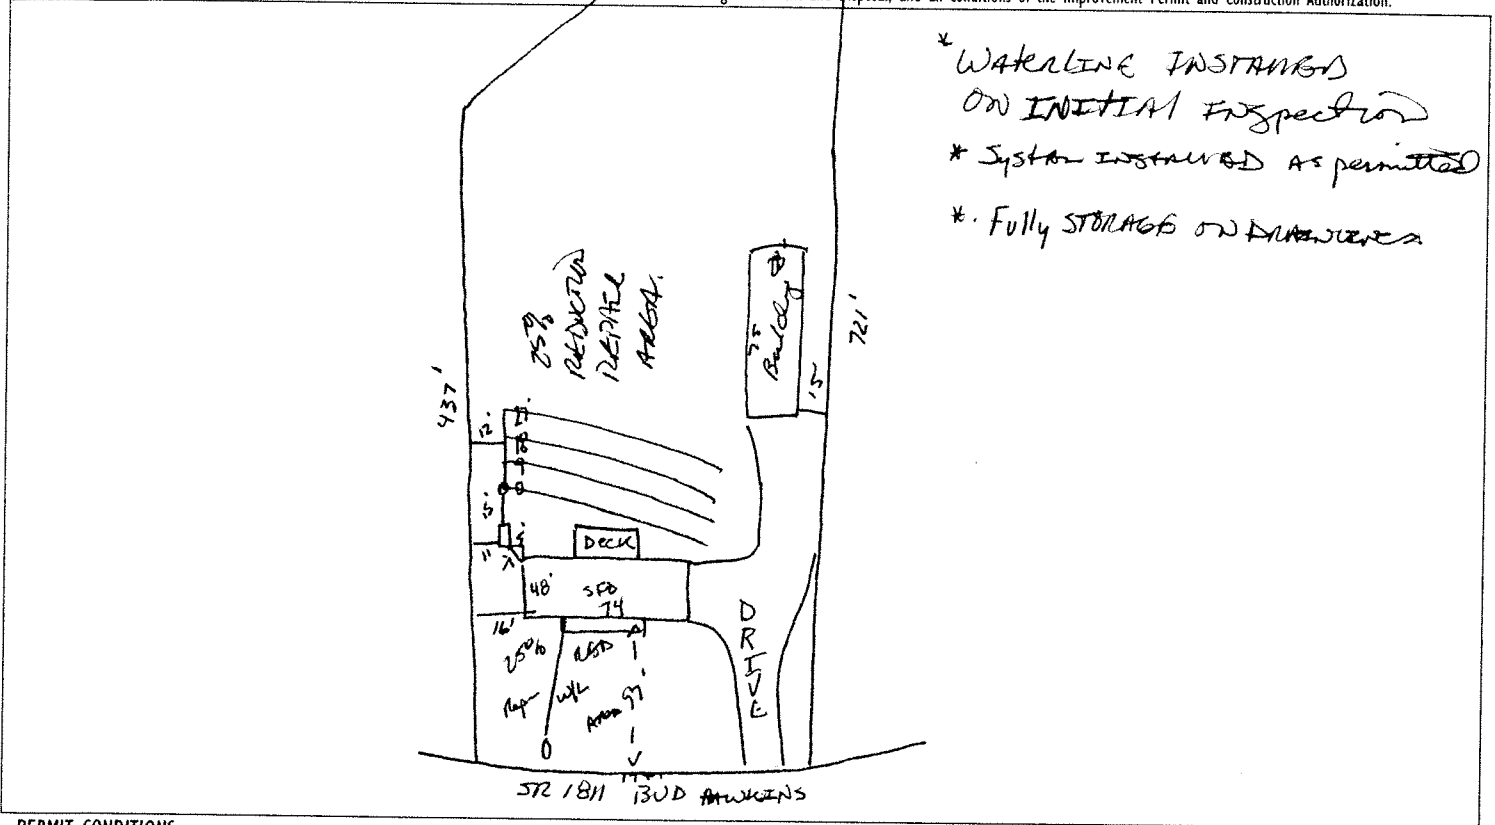 and all conditions of the Improvement Permit and Construction Authorization.
* WATERLINE INSTALLED
ON INITIAL INSpection
* System INSTALLED AS permitted
*. Fully STORAGE ON DRAINLINES
25%
REDUCTION
REPAIR
AREA.
Building
15'
721'
437'
12'
27'
18
9
0
15'
11'
5'
7'
DECK
48'
SFD
74
16'
25% RED
Repair W/L AREA
97'
DRIVE
SR 1811 BUD HAWKINS
PERMIT CONDITIONS